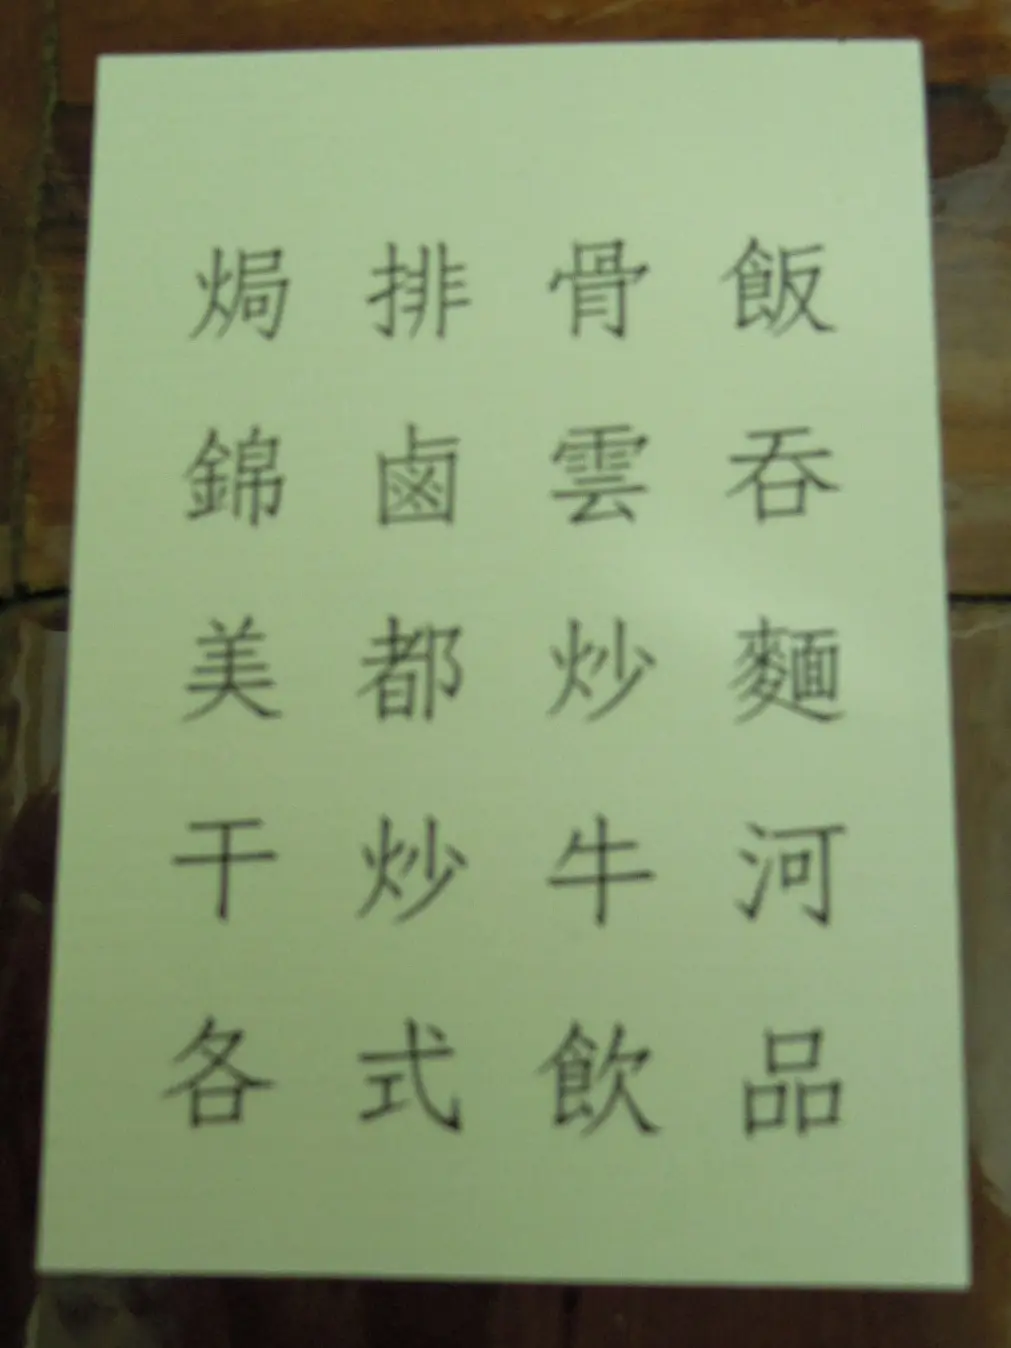 焗排骨飯
錦鹵雲吞
美都炒麵
干炒牛河
各式飲品